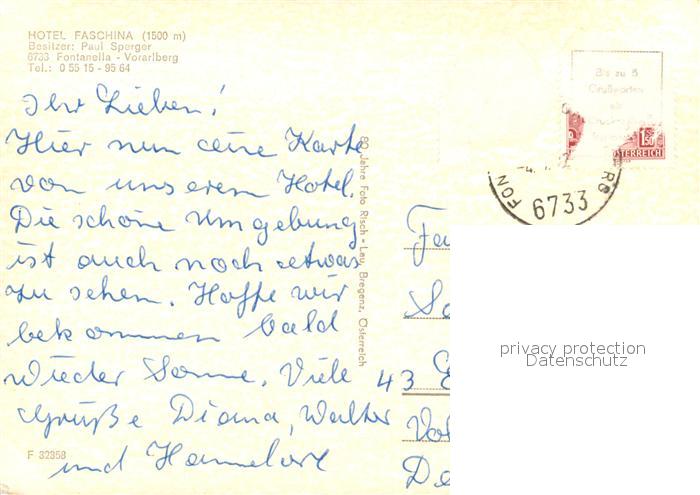 HOTEL FASCHINA (1500 m)
Besitzer: Paul Sperger
6733 Fontanella - Vorarlberg
Tel.: 0 55 15 - 95 64
Ihr Lieben!
Hier nun eine Karte
von unserem Hotel.
Die schöne Umgebung
ist auch noch etwas
zu sehen. Hoffe wir
bekommen bald
wieder Sonne. Viele
Grüße Diana, Walter
und Hannelore
F 32358
80 Jahre Foto Risch - Lau, Bregenz, Österreich
Bis zu 5
Grußworten
als
1.50
STERREICH
FON
6733
Fa
43
privacy protection
Datenschutz